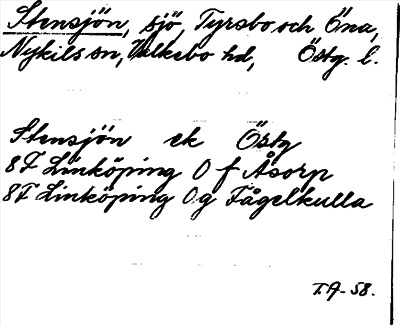 Stensjön, sjö, Tyrsbo och Öna,
Nykils sn, Valkebo hd, Östg. l.
Stensjön ek Östg
8F Linköping 0 f Åsorp
8F Linköping 0g Fågelkulla
T.A-58.